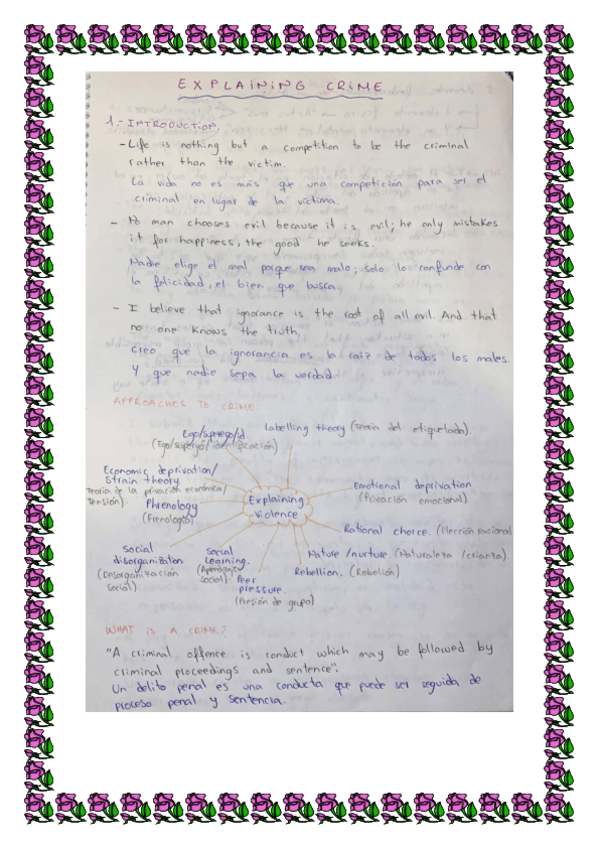 EXPLAINING CRIME
1.- INTRODUCTION.
- Life is nothing but a competition to be the criminal
rather than the victim.
La vida no es más que una competición para ser el
criminal en lugar de la víctima.
- No man chooses evil because it is evil; he only mistakes
it for happiness, the good he seeks.
Nadie elige el mal porque sea malo; solo lo confunde con
la felicidad, el bien que busca.
- I believe that ignorance is the root of all evil. And that
no one knows the truth.
Creo que la ignorancia es la raíz de todos los males.
Y que nadie sepa la verdad.
APPROACHES TO CRIME:
Ego/superego/id.
(Ego/superyó/identificación)
Labelling theory (Teoría del etiquetado).
Economic deprivation/
Strain theory
Teoría de la privación económica/
tensión).
Emotional deprivation
(Privación emocional).
Phrenology
(Frenología)
Explaining
violence
Rational choice. (Elección racional
Social
disorganization
(Desorganización
social)
Social
learning.
(Aprendizaje
social)
Peer
pressure.
(Presión de grupo)
Nature/nurture. (Naturaleza/crianza).
Rebellion. (Rebelión)
WHAT IS A CRIME?
"A criminal offence is conduct which may be followed by
criminal proceedings and sentence".
Un delito penal es una conducta que puede ser seguida de
proceso penal y sentencia.